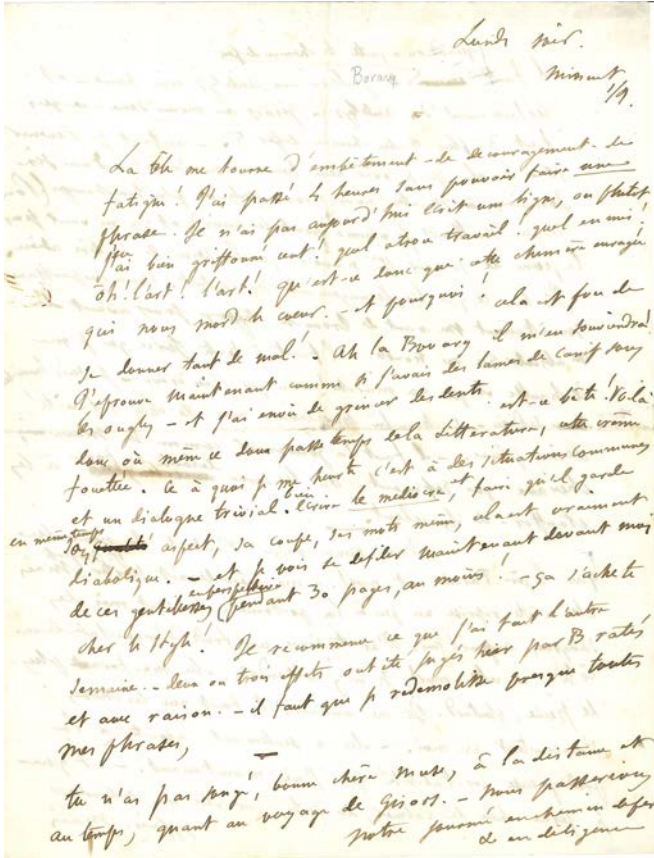 Lundi soir.
Bovary
minuit
1/2.
La tête me tourne d'embêtement - de découragement - de
fatigue! J'ai passé 4 heures sans pouvoir faire une
phrase. Je n'ai pas aujourd'hui écrit une ligne, ou plutôt
j'en ai bien griffonné cent! quel atroce travail! quel ennui!
Oh! l'art! l'art! qu'est-ce donc que cette chimère enragée
qui nous mord le coeur. - et pourquoi! cela est fou de
se donner tant de mal! - Ah la Bovary il m'en souviendra!
J'éprouve maintenant comme si j'avais des lames de canif sous
les ongles - et j'ai envie de grincer des dents. est-ce bête! Voilà
donc où mène ce doux passetemps de la littérature, cette crème
fouettée. Ce à quoi je me heurte c'est à des situations communes
et un dialogue trivial. bien écrire le médiocre, et faire qu'il garde
en même temps son aspect, sa coupe, ses mots même, cela est vraiment
diabolique. - et je vois se défiler maintenant devant moi
de ces gentillesses en perspective pendant 30 pages, au moins! - ça s'achète
cher le style! Je recommence ce que j'ai fait l'autre
semaine. - deux ou trois effets ont été jugés hier par B ratés
et avec raison. - il faut que je redémolisse presque toutes
mes phrases,
tu n'as pas songé, bonne chère muse, à la distance et
au temps, quant au voyage de Gisors. - nous passerions
notre journée en chemin de fer
& en diligence